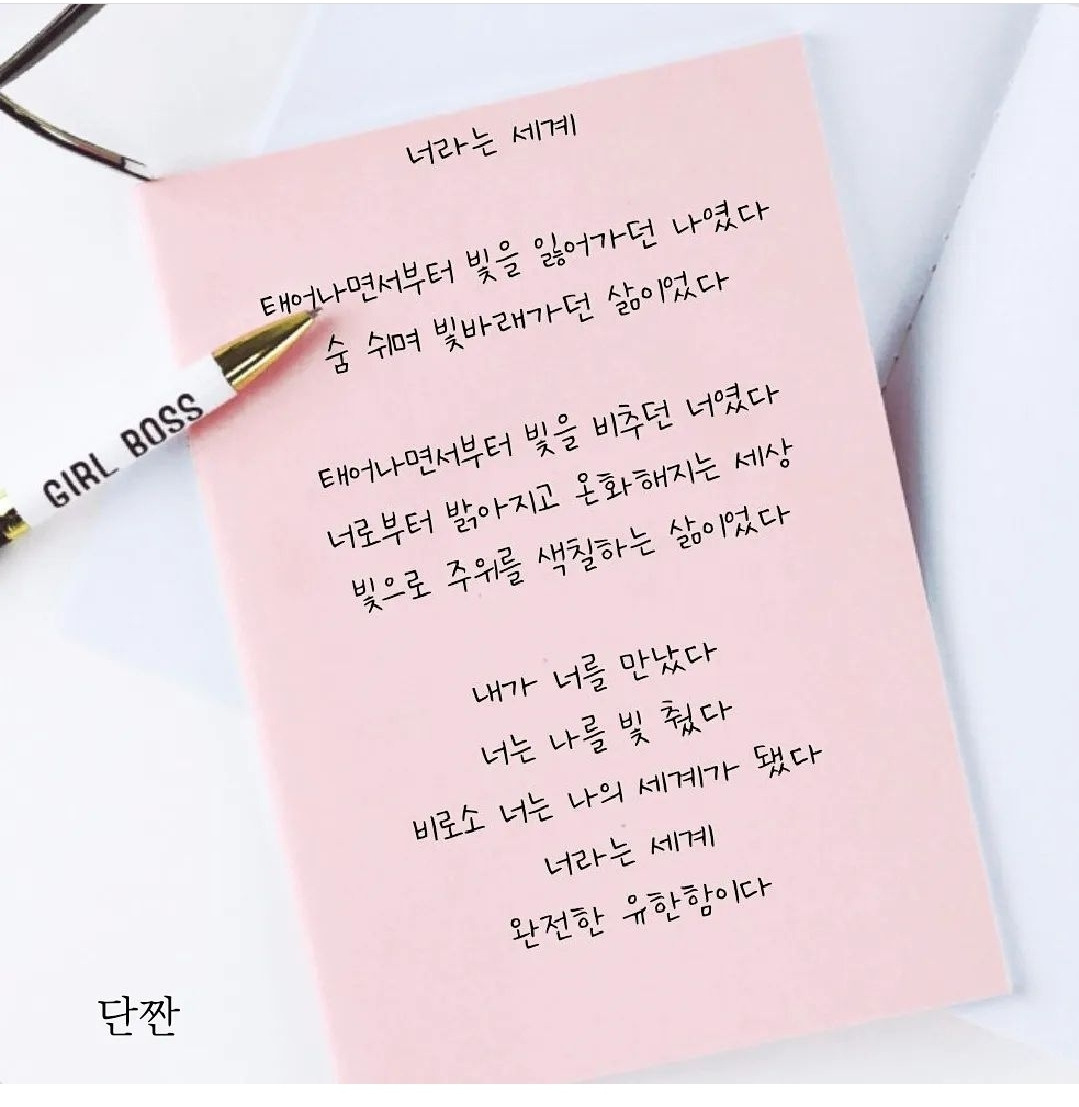 너라는 세계
태어나면서부터 빛을 잃어가던 나였다
숨 쉬며 빛바래가던 삶이었다
태어나면서부터 빛을 비추던 너였다
너로부터 밝아지고 온화해지는 세상
빛으로 주위를 색칠하는 삶이었다
내가 너를 만났다
너는 나를 빛 췄다
비로소 너는 나의 세계가 됐다
너라는 세계
완전한 유한함이다
GIRL BOSS
단짠